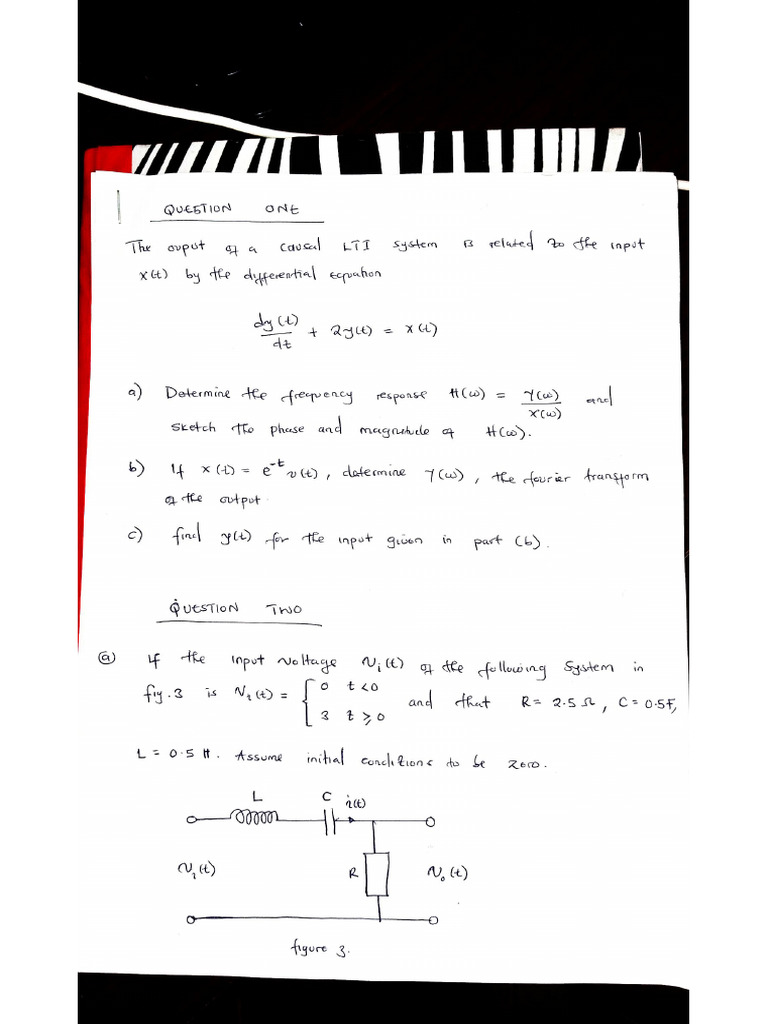 QUESTION ONE
The ouput of a causal LTI system is related to the input
x(t) by the differential equation
dy(t)/dt + 2y(t) = x(t)
a) Determine the frequency response H(ω) = Y(ω)/X(ω) and
sketch the phase and magnitude of H(ω).
b) If x(t) = e^-t u(t), determine Y(ω), the fourier transform
of the output.
c) find y(t) for the input given in part (b).
QUESTION TWO
(a) If the input voltage Vi(t) of the following system in
fig.3 is Vi(t) = { 0 t<0
3 t≥0 and that R= 2.5Ω, C=0.5F,
L = 0.5 H. Assume initial conditions to be zero.
L C i(t)
Vi(t) R Vo(t)
figure 3.